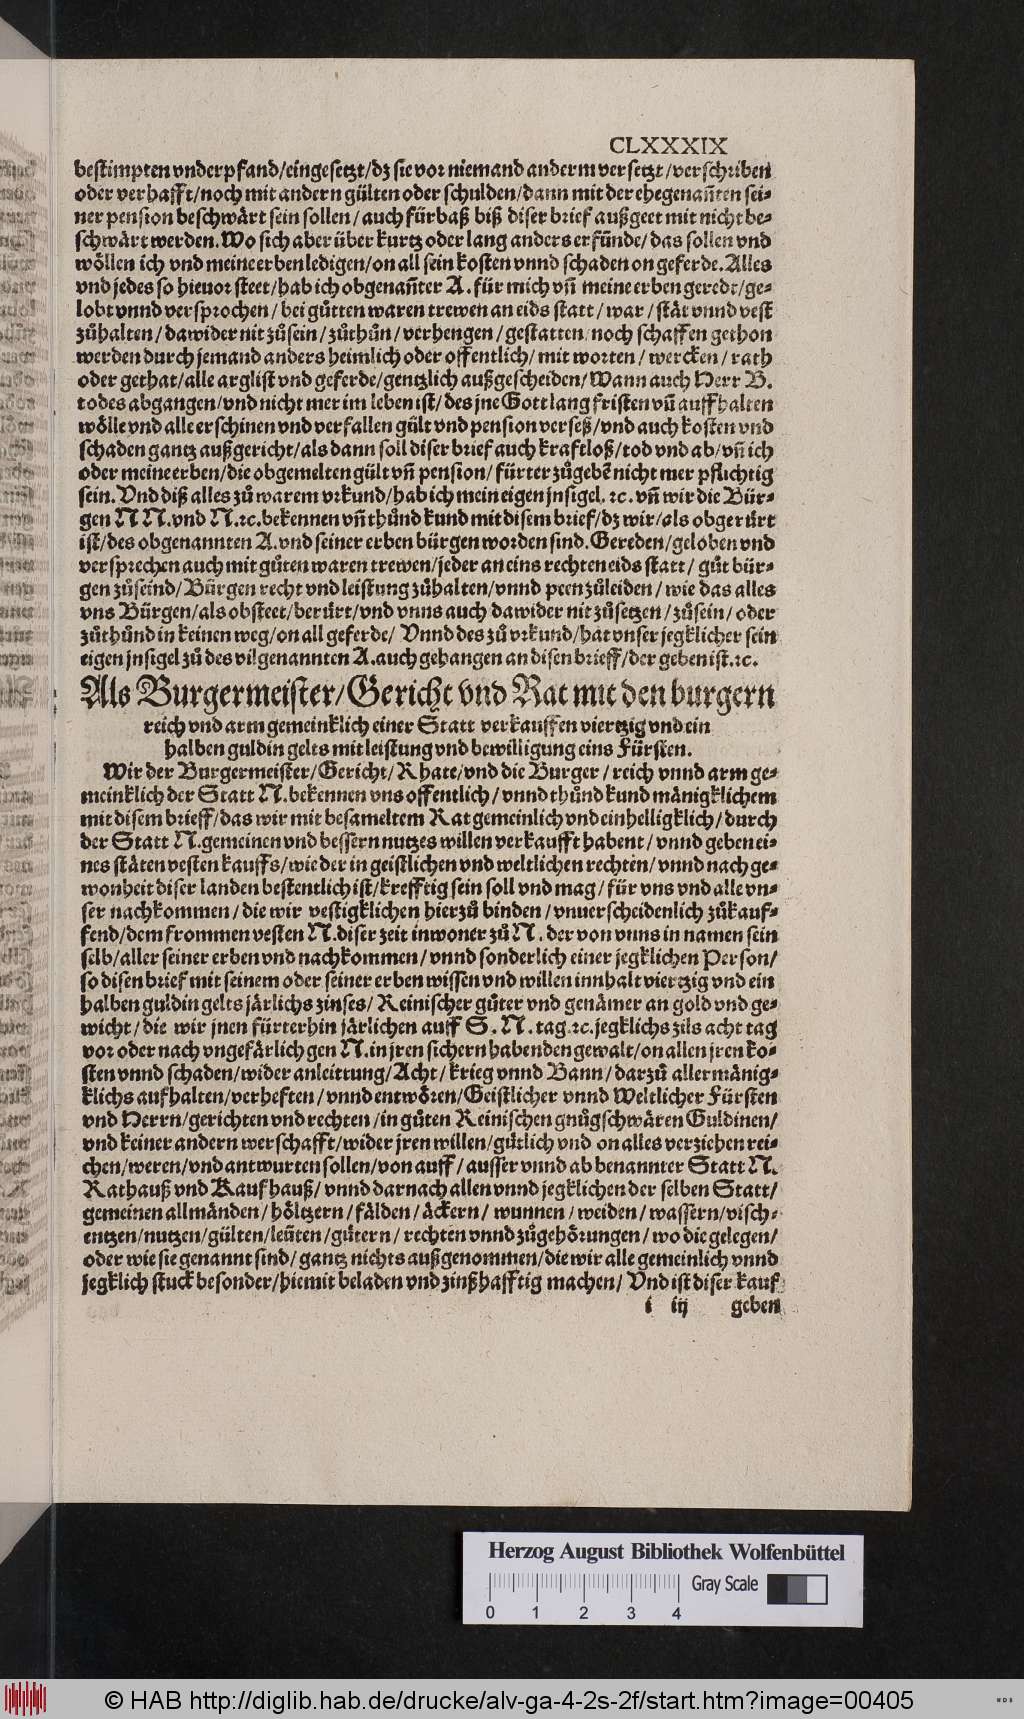 CLXXXIX
bestimpten vnderpfand/eingesetzt/dz sie vor niemand anderm versetzt/verschriben
oder verhafft/noch mit andern gülten oder schulden/dann mit der ehegenañten sei-
ner pension beschwärt sein sollen/auch fürbaß biß diser brief außgeet mit nicht be-
schwärt werden. Wo sich aber über kurtz oder lang anders erfünde/das sollen vnd
wöllen ich vnd meine erben ledigen/on all sein kosten vnnd schaden on geferde. Alles
vnd jedes so hieuor steet/hab ich obgenañter A. für mich vñ meine erben geredt/ge-
lobt vnnd versprochen/bei gůtten waren trewen an eids statt/war/stät vnnd vest
zůhalten/dawider nit zůsein/zůthůn/verhengen/gestatten/noch schaffen gethon
werden durch jemand anders heimlich oder offentlich/mit worten/wercken/rath
oder gethat/alle arglist vnd geferde/gentzlich außgescheiden/Wann auch Herr B.
todes abgangen/vnd nicht mer im leben ist/des jne Gott lang fristen vñ auffhalten
wölle vnd alle erschinen vnd verfallen gült vnd pension verseß/vnd auch kosten vnd
schaden gantz außgericht/als dann soll diser brief auch kraftloß/tod vnd ab/vñ ich
oder meine erben/die obgemelten gült vñ pension/fürter zůgebẽ nicht mer pflichtig
sein. Vnd diß alles zů warem vrkund/hab ich mein eigen jnsigel. ꝛc. vñ wir die Bür-
gen N N. vnd N. ꝛc. bekennen vñ thůnd kund mit disem brief/dz wir/als obgerürt
ist/des obgenannten A. vnd seiner erben bürgen worden sind. Gereden/geloben vnd
versprechen auch mit gůten waren trewen/jeder an eins rechten eids statt/gůt bür-
gen zůseind/Bürgen recht vnd leistung zůhalten/vnnd peen zůleiden/wie das alles
vns Bürgen/als obsteet/berürt/vnd vnns auch dawider nit zůsetzen/zůsein/oder
zůthůnd in keinen weg/on all geferde/Vnnd des zů vrkund/hat vnser jegklicher sein
eigen jnsigel zů des vilgenannten A. auch gehangen an disen brieff/der geben ist. ꝛc.
Als Burgermeister/Gericht vnd Rat mit den burgern
reich vnd arm gemeinklich einer Statt verkauffen viertzig vnd ein
halben guldin gelts mit leistung vnd bewilligung eins Fürsten.
Wir der Burgermeister/Gericht/Rhate/vnd die Burger/reich vnnd arm ge-
meinklich der Statt N. bekennen vns offentlich/vnnd thůnd kund mänigklichem
mit disem brieff/das wir mit besameltem Rat gemeinlich vnd einhelligklich/durch
der Statt N. gemeinen vnd bessern nutzes willen verkaufft habent/vnnd geben ei-
nes stäten vesten kauffs/wie der in geistlichen vnd weltlichen rechten/vnnd nach ge-
wonheit diser landen bestentlich ist/krefftig sein soll vnd mag/für vns vnd alle vn-
ser nachkommen/die wir vestigklichen hierzů binden/vnuerscheidenlich zůkauf-
fend/dem frommen vesten N. diser zeit inwoner zů N. der von vnns in namen sein
selb/aller seiner erben vnd nachkommen/vnnd sonderlich einer jegklichen Person/
so disen brief mit seinem oder seiner erben wissen vnd willen innhalt viertzig vnd ein
halben guldin gelts järlichs zinses/Reinischer gůter vnd genämer an gold vnd ge-
wicht/die wir jnen fürterhin järlichen auff S. N. tag. ꝛc. jegklichs zils acht tag
vor oder nach vngefärlich gen N. in jren sichern habenden gewalt/on allen jren ko-
sten vnnd schaden/wider anleittung/Acht/krieg vnnd Bann/darzů aller mänig-
klichs aufhalten/verheften/vnnd entwören/Geistlicher vnnd Weltlicher Fürsten
vnd Herrn/gerichten vnd rechten/in gůten Reinischen gnůgschwären Guldinen/
vnd keiner andern werschafft/wider jren willen/gütlich vnd on alles verziehen rei-
chen/weren/vnd antwurten sollen/von auff/ausser vnnd ab benannter Statt N.
Rathauß vnd Kaufhauß/vnnd darnach allen vnnd jegklichen der selben Statt/
gemeinen allmänden/höltzern/fälden/äckern/wunnen/weiden/wassern/visch-
entzen/nutzen/gülten/leüten/gütern/rechten vnnd zůgehörungen/wo die gelegen/
oder wie sie genannt sind/gantz nichts außgenommen/die wir alle gemeinlich vnnd
jegklich stuck besonder/hiemit beladen vnd zinßhafftig machen/Vnd ist diser kauf
i iij geben
Herzog August Bibliothek Wolfenbüttel
Gray Scale
0 1 2 3 4
© HAB http://diglib.hab.de/drucke/alv-ga-4-2s-2f/start.htm?image=00405